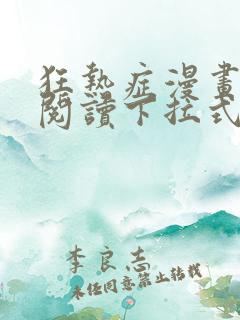 狂熱症漫畫
閱讀下拉式
李良志
未任同意禁止轉載